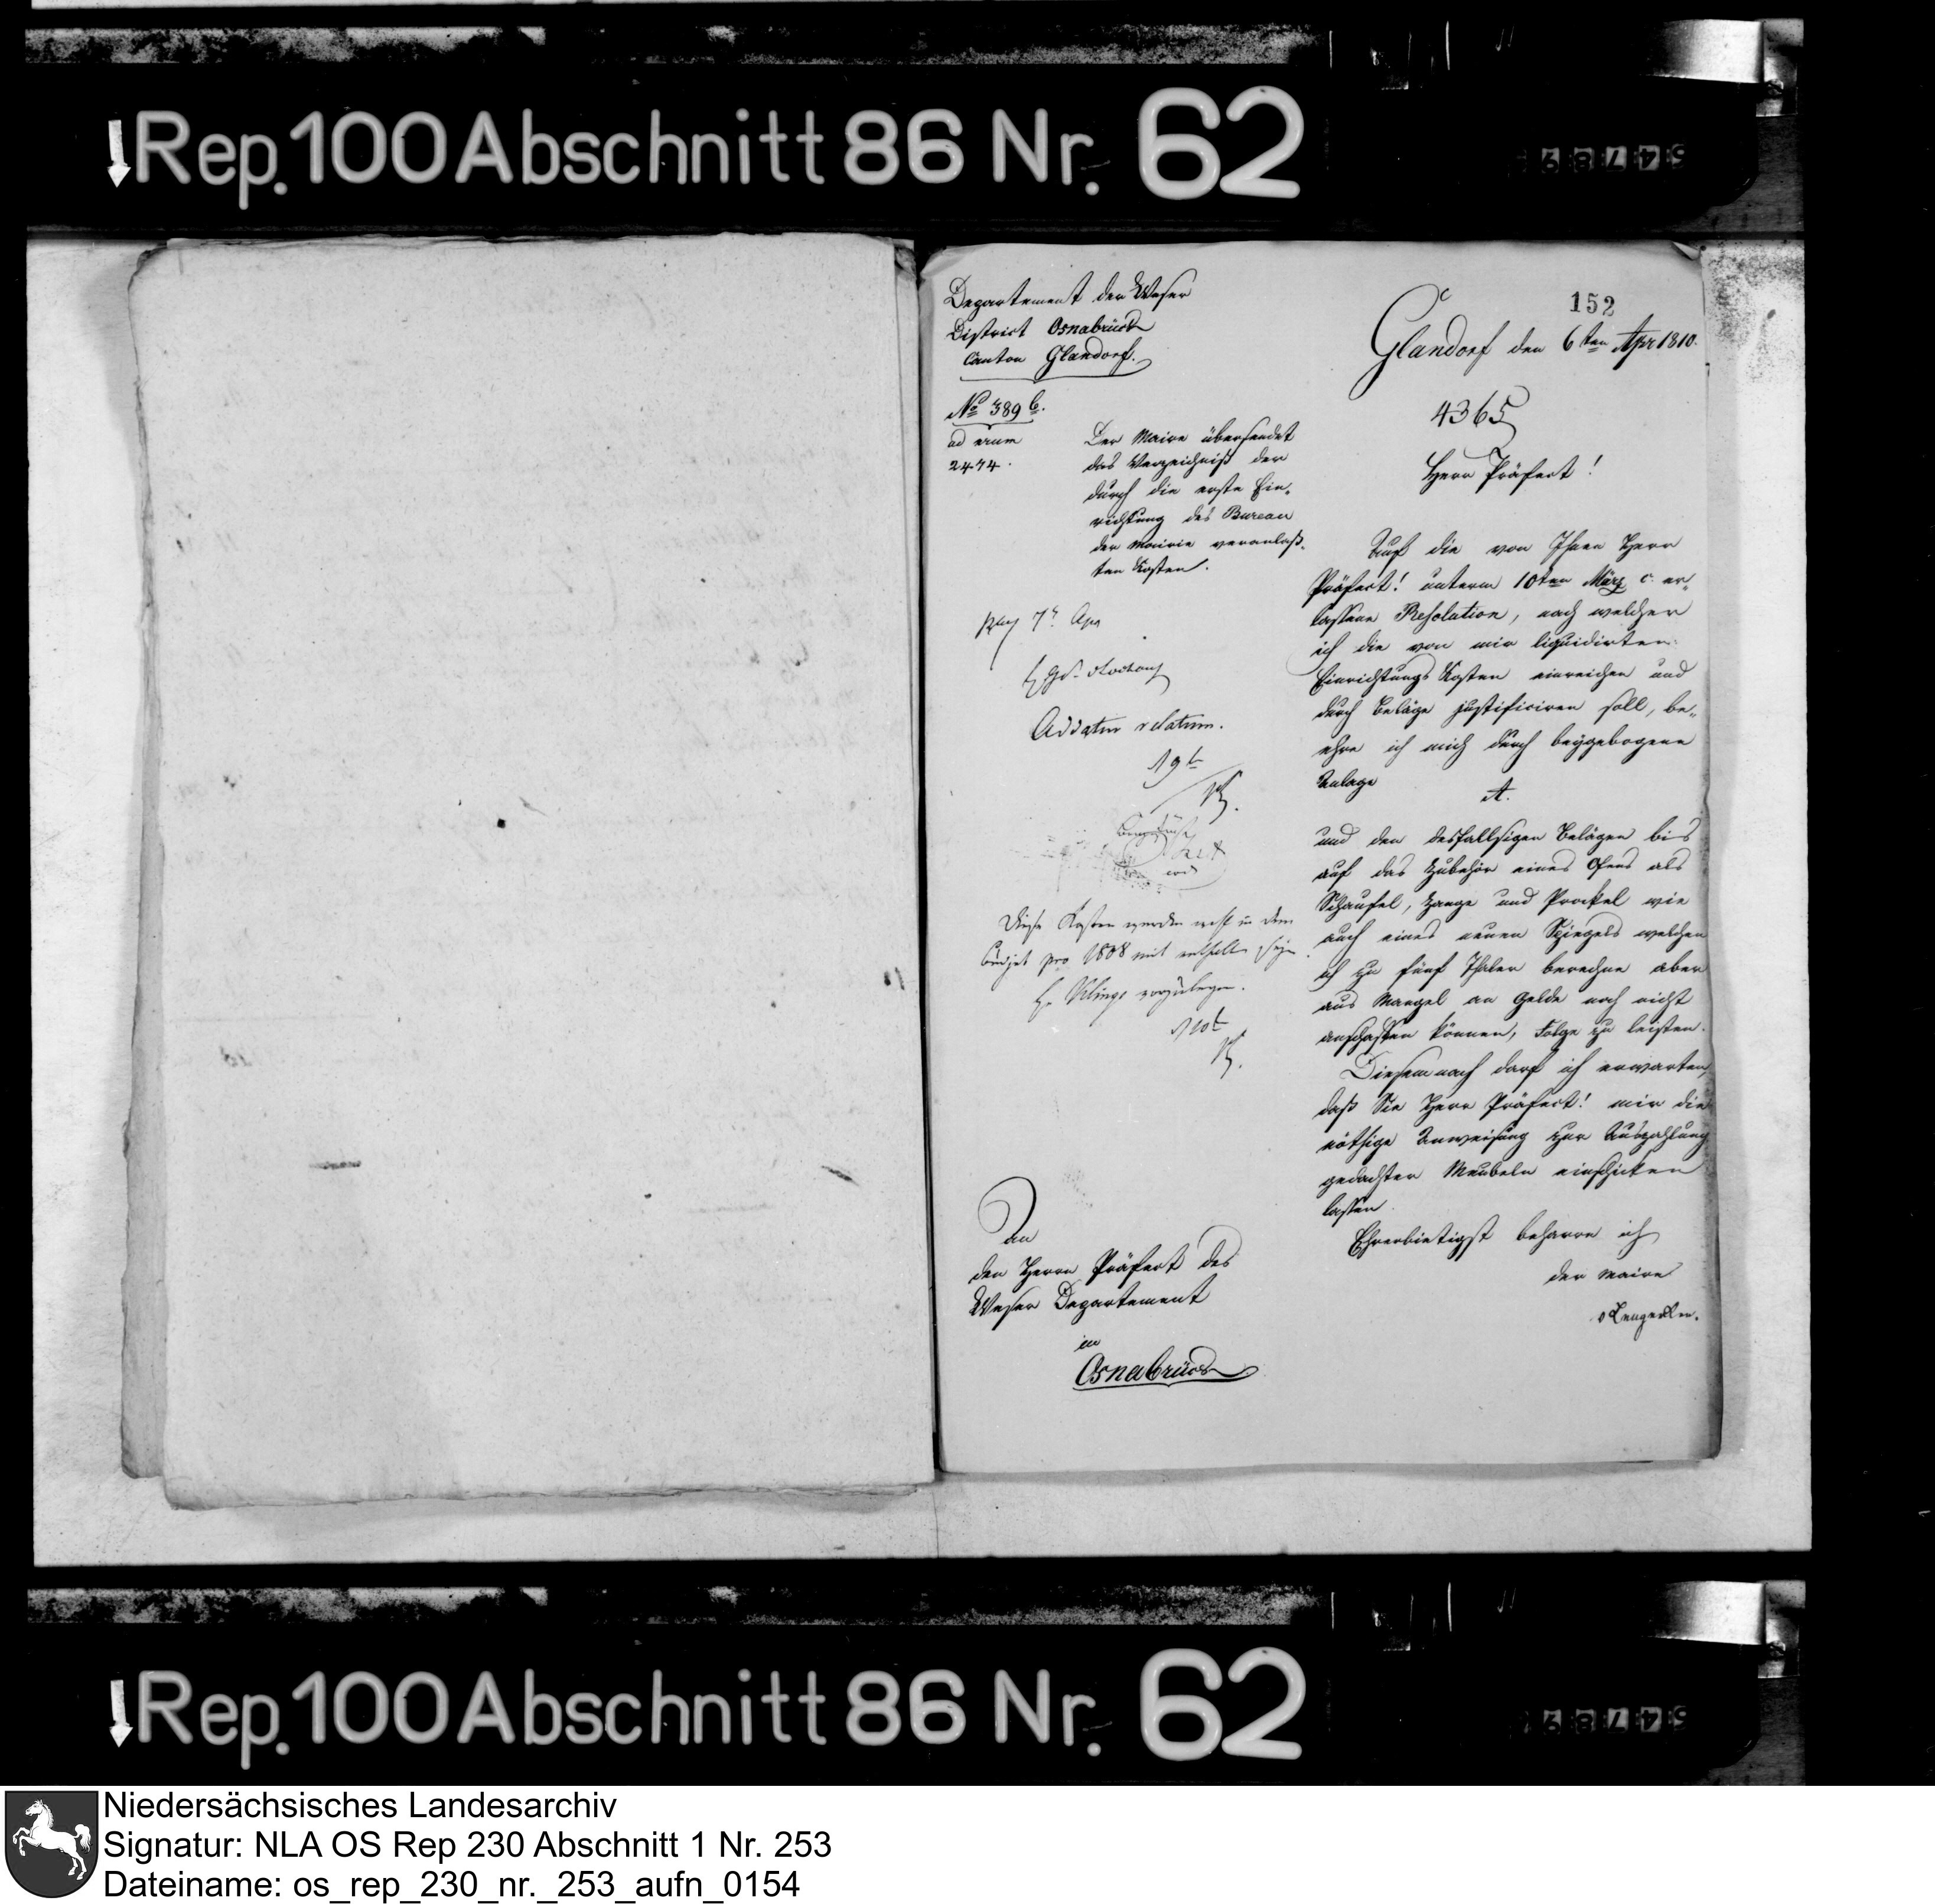 Rep. 100 Abschnitt 86 Nr. 62
54789
Departement der Weser
District Osnabrück
Canton Glandorf.
No 389 b.
ad num
2474.
Der Maire übersendet
das Verzeichniß der
durch die erste Ein-
richtung des Bureau
der Mairie veranlaß-
ten Kosten.
7t Apr
Addatur relatum.
19t
Diese Kosten werden wohl in dem
Budjet pro 1808 mit enthalten seyn
vorzulegen.
110t
An
den Herrn Präfect des
Weser Departement
in
Osnabrück
152
Glandorf den 6ten Apr 1810.
4365
Herr Präfect!
Auf die von Ihnen Herr
Präfect! unterm 10ten März c. er-
lassene Resolution, nach welcher
ich die von mir liquidirten
Einrichtungs Kosten einreichen und
durch Beläge justificiren soll, be-
ehre ich mich durch beygebogene
Anlage
A.
und den desfallsigen Belägen bis
auf das Zubehör eines Ofens als
Schaufel, Zange und Prockel wie
auch eines neuen Spiegels welchen
ich zu fünf Thaler berechne aber
aus Mangel an Gelde noch nicht
anschaffen können, Folge zu leisten.
Diesemnach darf ich erwarten,
daß Sie Herr Präfect! mir die
nöthige Anweisung zur Auszahlung
gedachter Meubeln einschicken
lassen.
Ehrerbietigst beharre ich
der Maire
v Lengerken.
Rep. 100 Abschnitt 86 Nr. 62
54789
Niedersächsisches Landesarchiv
Signatur: NLA OS Rep 230 Abschnitt 1 Nr. 253
Dateiname: os_rep_230_nr._253_aufn_0154